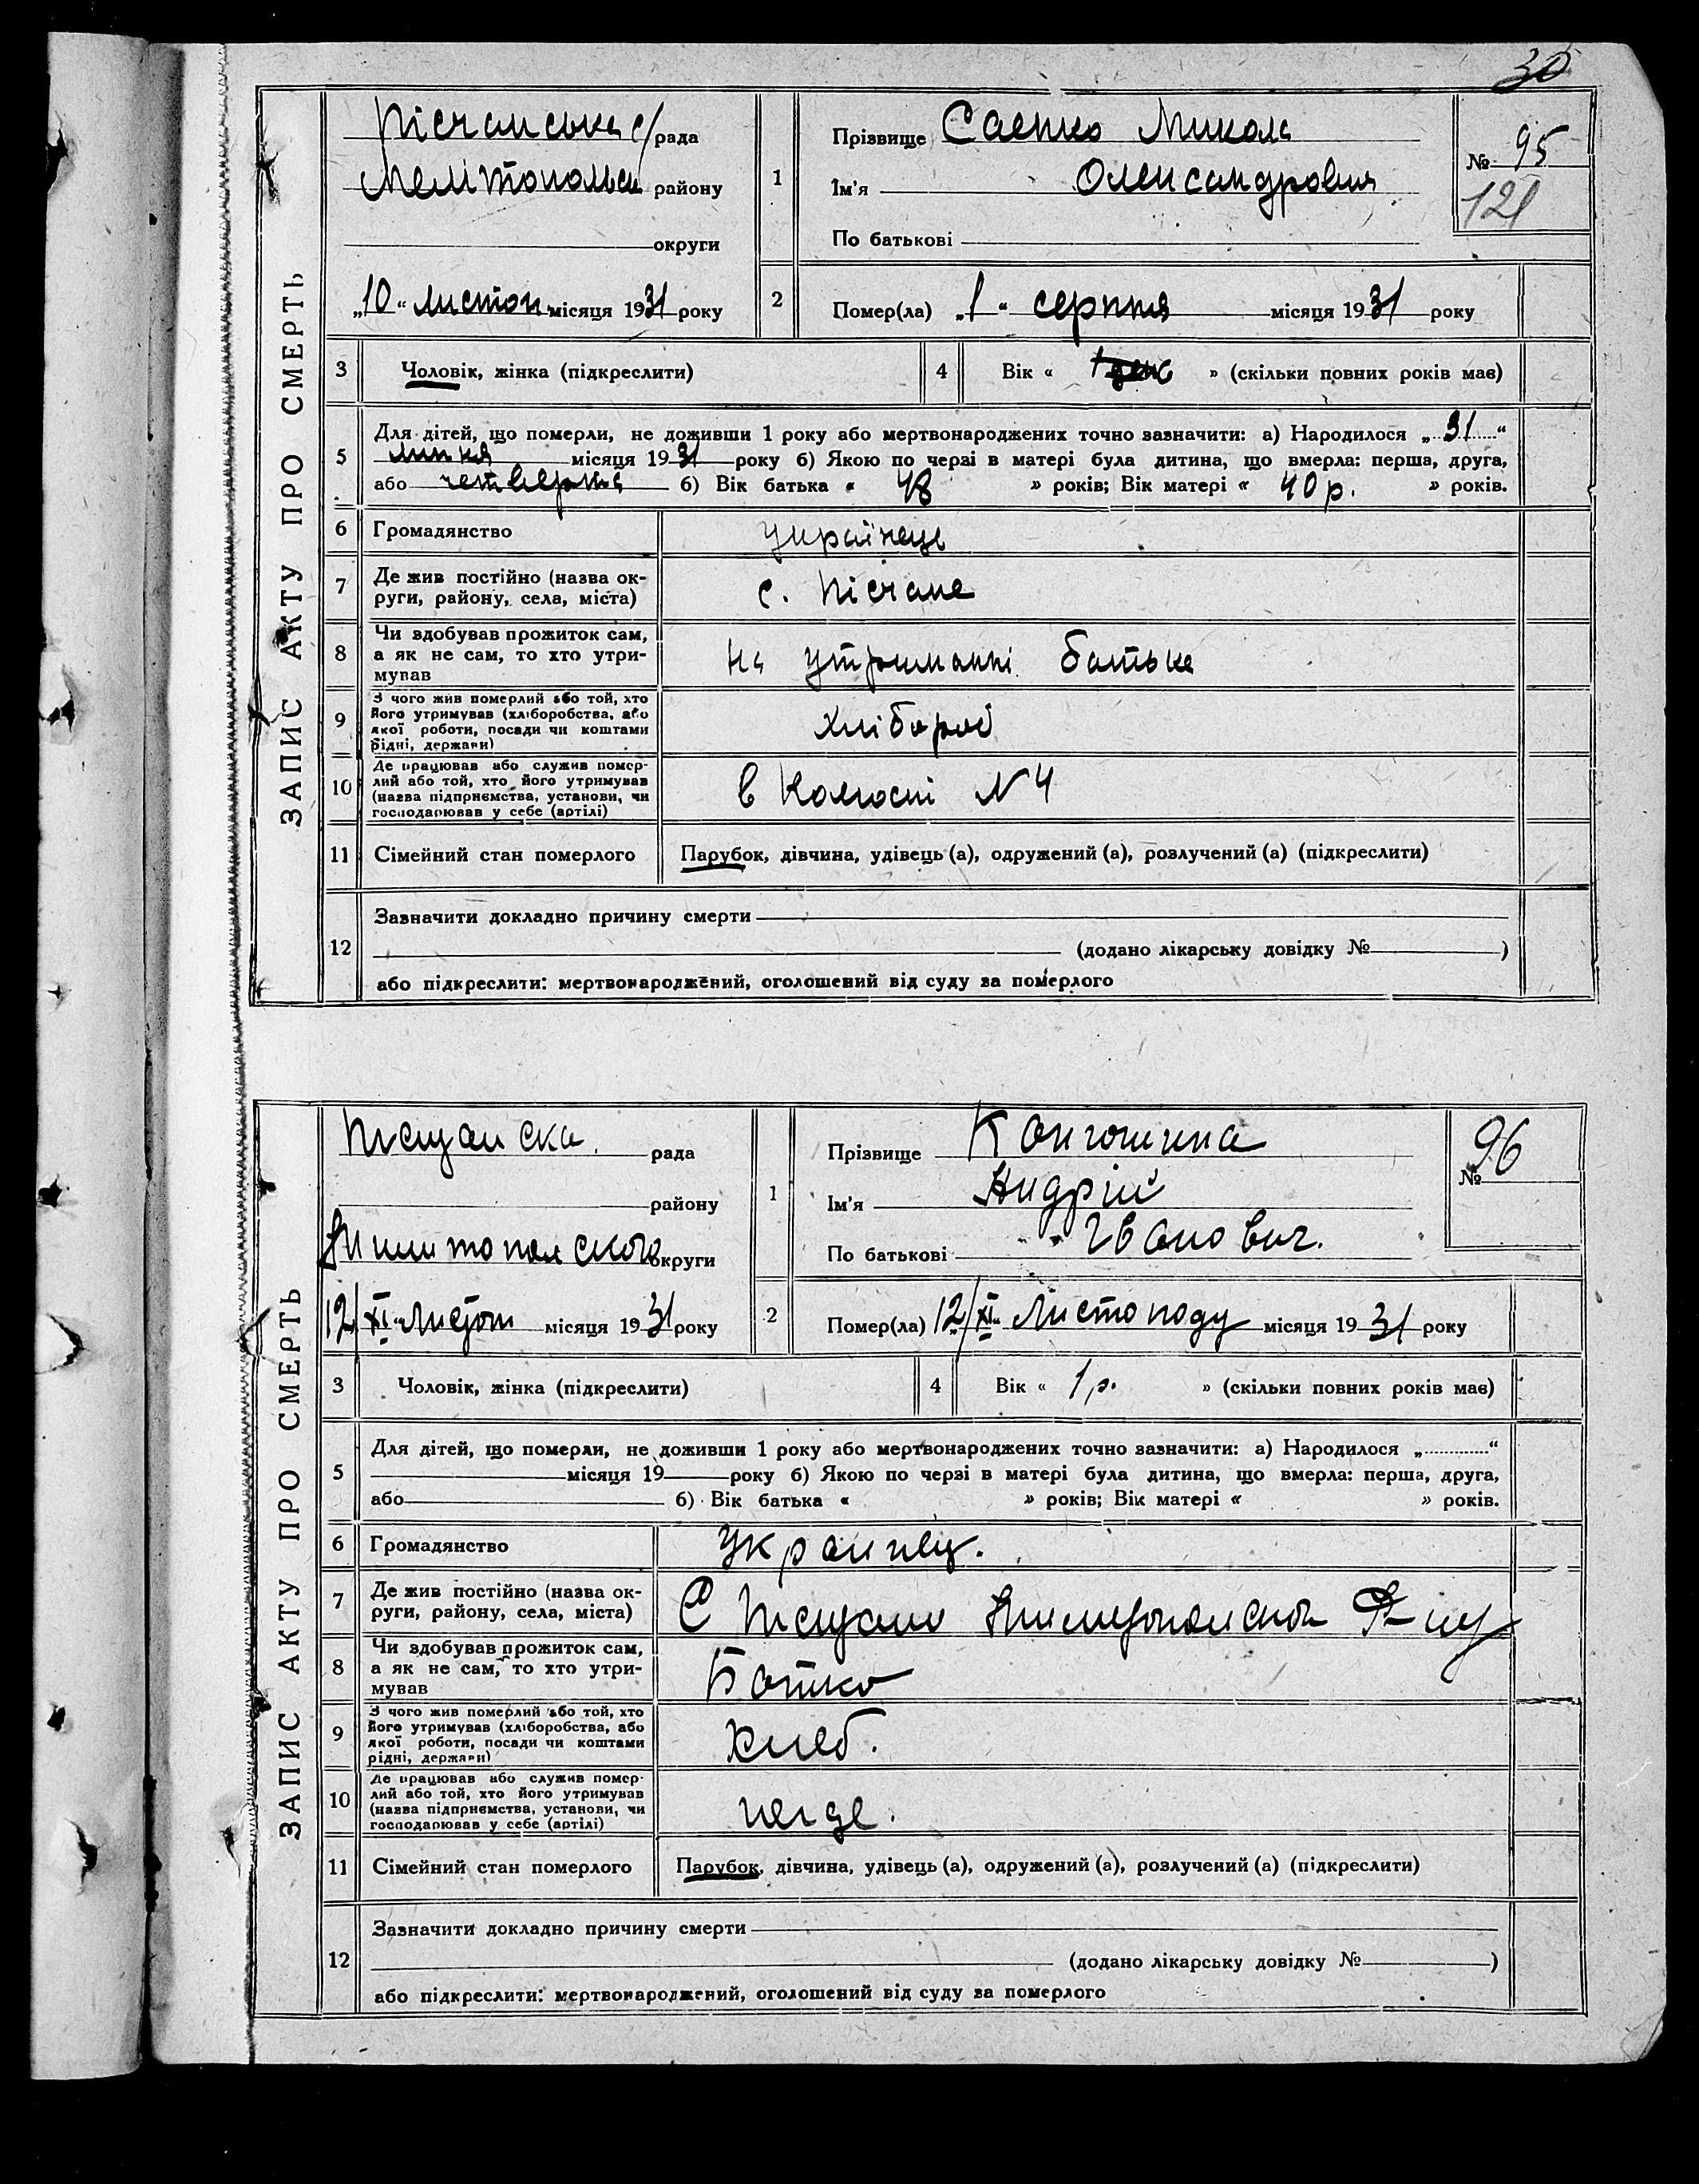 30
ЗАПИС АКТУ ПРО СМЕРТЬ
Пісчанська с/рада
Мелітопольськ району
округи
„10“ листоп. місяця 1931 року
1
Прізвище Саєнко Микола
Ім'я Олександрович
По батькові
№ 95
121
2
Помер(ла) „1“ серпня місяця 1931 року
3
Чоловік, жінка (підкреслити)
4
Вік « 1 » (скільки повних років має)
5
Для дітей, що померли, не доживши 1 року або мертвонароджених точно зазначити: а) Народилося „31“
липня місяця 1931 року б) Якою по черзі в матері була дитина, що вмерла: перша, друга,
або четверта б) Вік батька « 48 » років; Вік матері « 40 р. » років.
6
Громадянство
українець
7
Де жив постійно (назва ок-
руги, району, села, міста)
с. Пісчане
8
Чи здобував прожиток сам,
а як не сам, то хто утри-
мував
На утриманні батька
9
З чого жив померлий або той, хто
його утримував (хліборобства, або
якої роботи, посади чи коштами
рідні, держави)
хлібороб
10
Де працював або служив помер-
лий або той, хто його утримував
(назва підприємства, установи, чи
господарював у себе (артілі)
в колгоспі N 4
11
Сімейний стан померлого
Парубок, дівчина, удівець (а), одружений (а), розлучений (а) (підкреслити)
12
Зазначити докладно причину смерти
(додано лікарську довідку № )
або підкреслити: мертвонароджений, оголошений від суду за померлого
ЗАПИС АКТУ ПРО СМЕРТЬ
Писщанска. рада
району
округи
12/XI „Листоп місяця 1931 року
1
Прізвище
Ім'я Андрій
По батькові Іванович.
№ 96
2
Помер(ла) 12/XI „ Листопаду місяця 1931 року
3
Чоловік, жінка (підкреслити)
4
Вік « 1 р. » (скільки повних років має)
5
Для дітей, що померли, не доживши 1 року або мертвонароджених точно зазначити: а) Народилося „ “
місяця 19 року б) Якою по черзі в матері була дитина, що вмерла: перша, друга,
або б) Вік батька « » років; Вік матері « » років.
6
Громадянство
Украинец.
7
Де жив постійно (назва ок-
руги, району, села, міста)
С
8
Чи здобував прожиток сам,
а як не сам, то хто утри-
мував
Батько
9
З чого жив померлий або той, хто
його утримував (хліборобства, або
якої роботи, посади чи коштами
рідні, держави)
хлеб.
10
Де працював або служив помер-
лий або той, хто його утримував
(назва підприємства, установи, чи
господарював у себе (артілі)
11
Сімейний стан померлого
Парубок, дівчина, удівець (а), одружений (а), розлучений (а) (підкреслити)
12
Зазначити докладно причину смерти
(додано лікарську довідку № )
або підкреслити: мертвонароджений, оголошений від суду за померлого